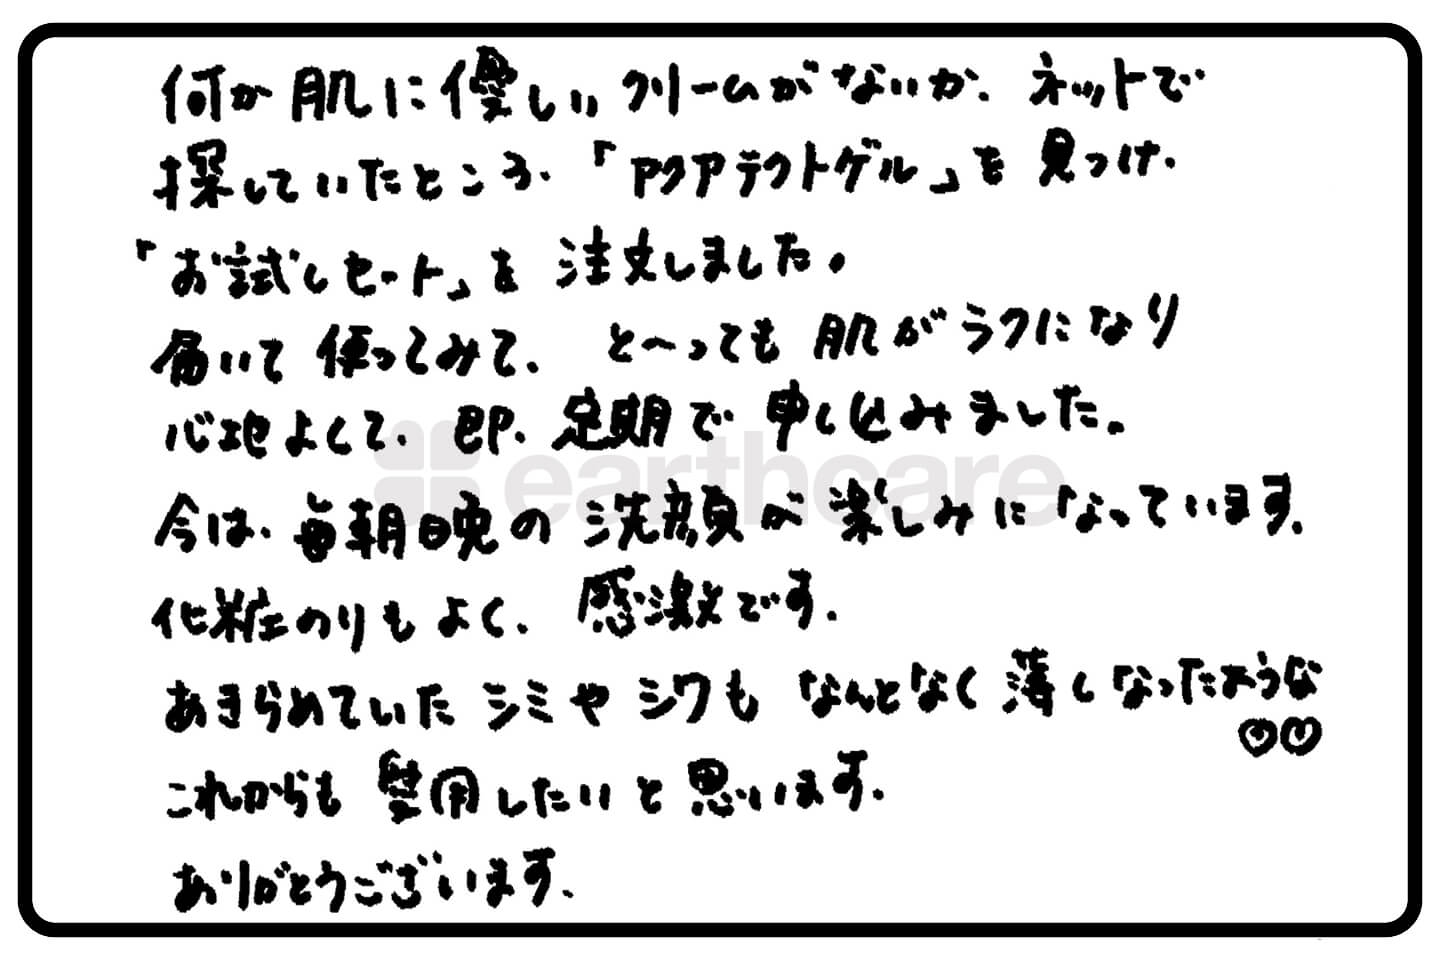 何か肌に優しいクリームがないか、ネットで
探していたところ、「アクアテクトゲル」を見つけ、
「お試しセット」を注文しました。
届いて使ってみて、と〜っても肌がラクになり
心地よくて、即、定期で申し込みました。
earthcare
今は、毎朝晩の洗顔が楽しみになっています。
化粧のりもよく、感激です。
あきらめていたシミやシワもなんとなく薄くなったような
♡♡
これからも愛用したいと思います。
ありがとうございます。